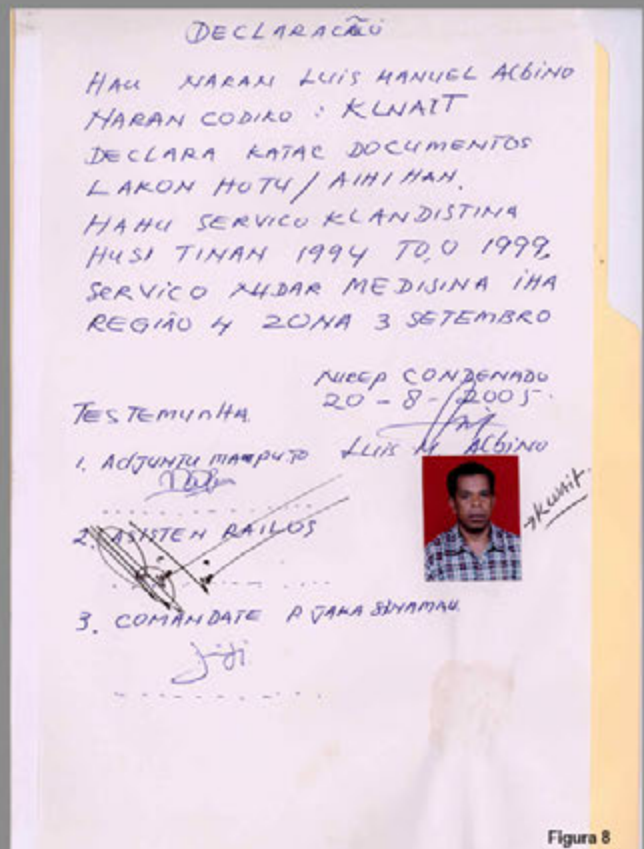 DECLARACÃO
HAU NARAN LUIS MANUEL ALBINO
NARAN CODIKO : KUWAIT
DECLARA KATAC DOCUMENTOS
LAKON HOTU / AIHI HAN.
HAHU SERVICO KLANDISTINA
HUSI TINAN 1994 TO,O 1999.
SERVICO XUDAR MEDISINA IHA
REGIÃO 4 ZONA 3 SETEMBRO
CONDENADO
20-8-2005.
TESTEMUNHA.
LUIS M. ALBINO
1. ADJUNTU
→KUWAIT.
2. ASISTEN RAILOS
3. COMANDATE P. JAKA
Figura 8